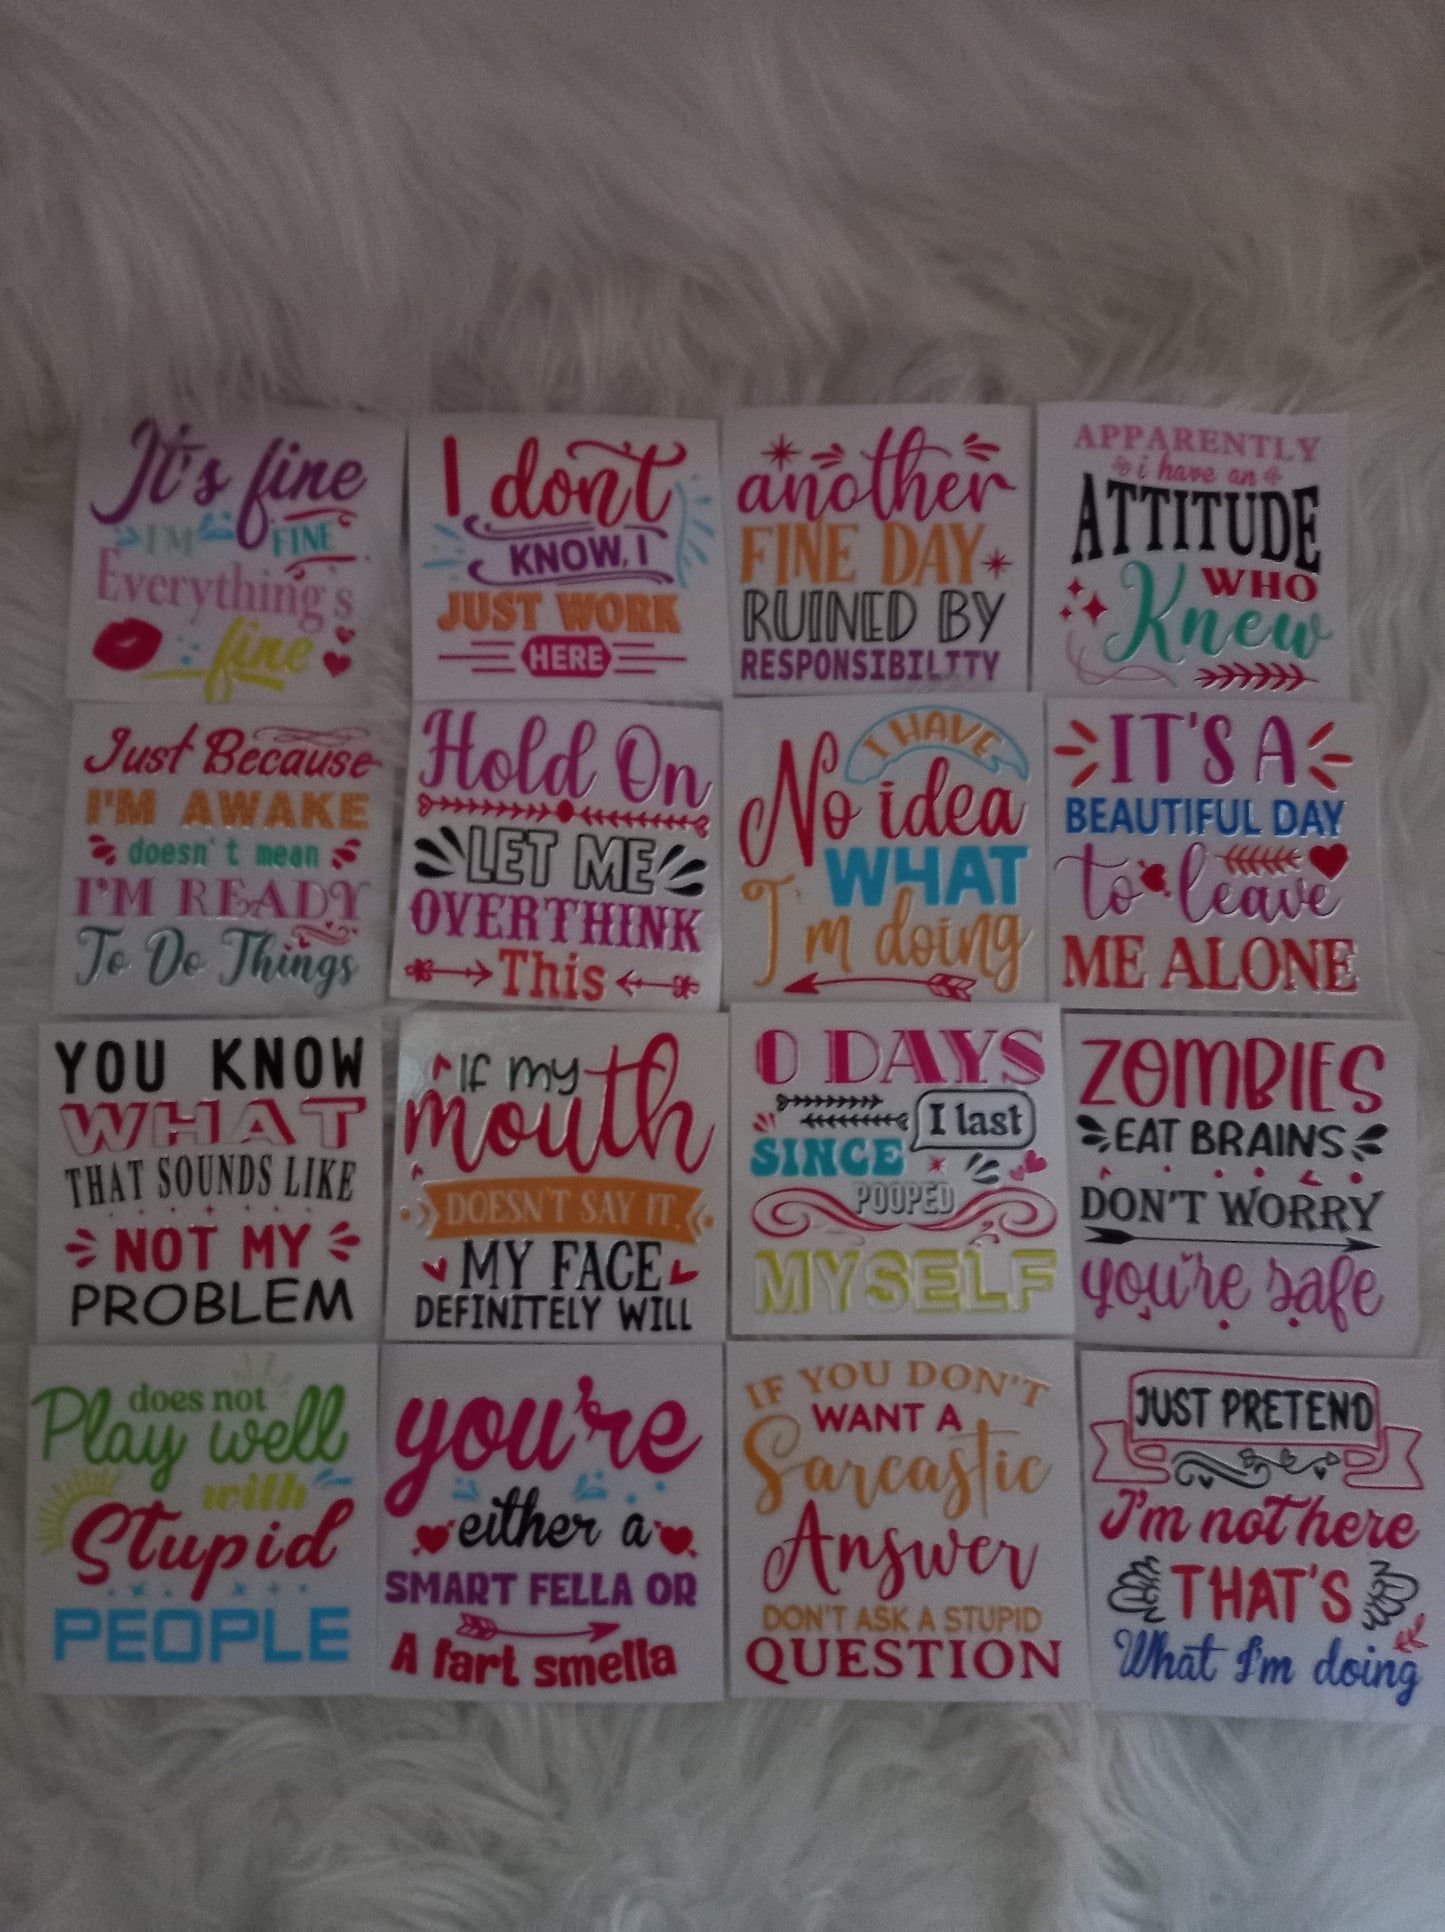 It's fine
I'M FINE
Everything's
fine
I don't
KNOW, I
JUST WORK
HERE
another
FINE DAY
RUINED BY
RESPONSIBILITY
APPARENTLY
i have an
ATTITUDE
WHO
Knew
Just Because
I'M AWAKE
doesn't mean
I'M READY
To Do Things
Hold On
LET ME
OVERTHINK
This
I HAVE
No idea
WHAT
I'm doing
IT'S A
BEAUTIFUL DAY
to leave
ME ALONE
YOU KNOW
WHAT
THAT SOUNDS LIKE
NOT MY
PROBLEM
IF my
mouth
DOESN'T SAY IT,
MY FACE
DEFINITELY WILL
0 DAYS
SINCE I last
POOPED
MYSELF
ZOMBIES
EAT BRAINS
DON'T WORRY
you're safe
does not
Play well
with
Stupid
PEOPLE
you're
either a
SMART FELLA OR
A fart smella
IF YOU DON'T
WANT A
Sarcastic
Answer
DON'T ASK A STUPID
QUESTION
JUST PRETEND
I'm not here
THAT'S
What I'm doing